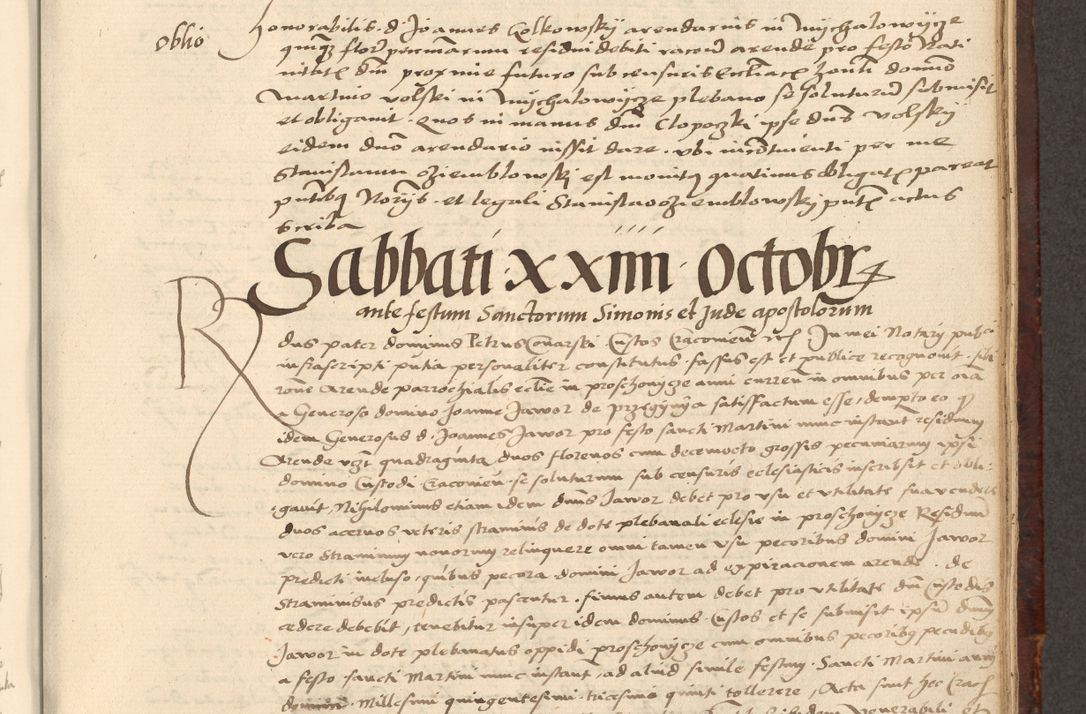 oblio
Honorabilis d Joannes Golkowskÿ arendarius in Mÿchalowÿcze
quinqz flor pecuniarum residui debiti racione arende pro festo Nati
nitatis dni proxime futuro sub censuris ecclïasticis honti domino
Martino volski in Mÿchalowÿcze plebano se soluturum submisit
et obligavit. Quos in manus dni Clopoczki ipse dnus volskÿ
eidem dno arendario iussit dare. ubi per me
Stanislaum dziemblowskj est monitus quatinus obligatis pareat
pntibus Norÿs. et legali Stanislao dziemblowskj pntis actus
scriba
Sabbati · XXIIII · Octobr
ante festum Sanctorum Simonis et Jude apostolorum
R dus pater dominus Petrus Conarski Custos Cracovien In mei Notarÿ publici
infrascripti pntia personaliter constitutus. fassus est et publice recognovit. sibi
rone arende parrochialis eclie in proschovÿcze anni curren in omnibus per oia
a Generoso domino Joanne Jawor de satisfactum esse, dempto eo
idem Generosus d. Joannes Jawor pro festo sancti Martini nunc instant residuum
Arende vzt quadraginta duos florenos cum decemocto grossis pecuniarum ipsi
domino Custodi Cracovien. se soluturum sub censuris eclesiasticis inscribsit et obli-
gavit. Nihilominus etiam idem dnus Jawor debet pro usu et utilitate sua vendere
duos acervos veteris straminis de dote plebanali eclesie in proschovÿcze Residuum
vero straminum novorum relinquere omni tamen usu pecoribus domini Jawor
predicti incluso, quibus pecora domini Jawor ad expiracionem arende. de
straminibus predictis pascentur. fimus autem debet pro utilitate dni Custodis
cedere debebit, tenebitur insuper idem dominus Custos et se submisit ipsum dnum
Jawor in dote plebanatus oppidi proschovÿcze cum omnibus pecoribus pecudibus
a festo sancti Martini nunc instant, ad aliud simile festum Sancti Martini anni
domini Millesimi quingentesimi tricesimo quinti tollerere, Acta sunt hec Crac
venerabili et